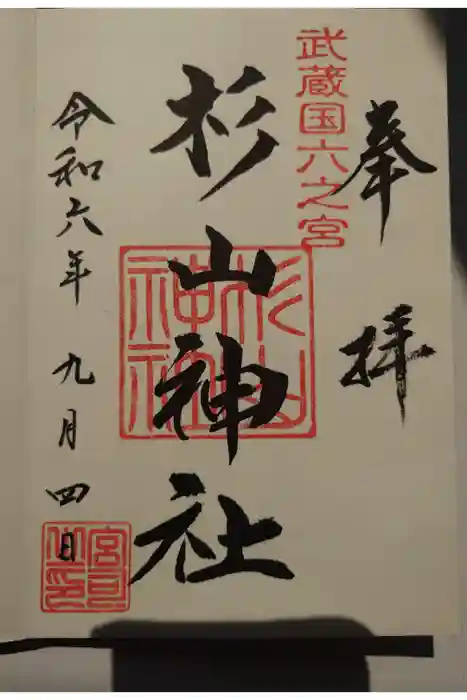 奉拝
武蔵国六之宮
杉山神社
杉山神社
令和六年九月四日